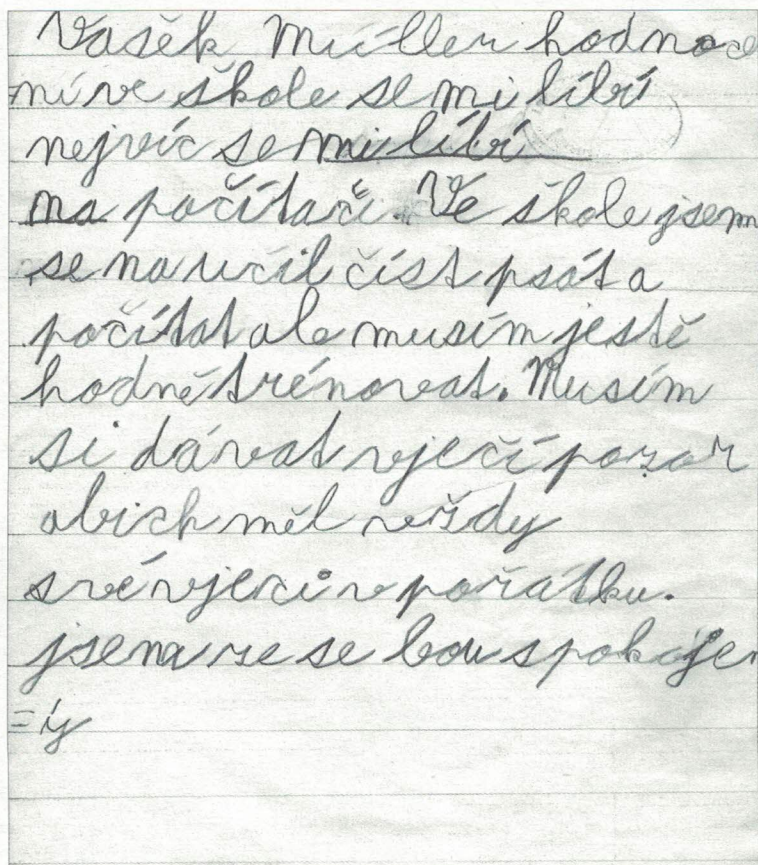 Vašěk Müller hodnoce
ní ve škole se mi líbí
nejvíc se mi líbí
na počítači. Ve škole jsem
se naučil číst psát a
počítat ale musím ještě
hodně trénovat. Musím
si dávat vječí pozor
abich měl vždy
své vjeci v pořátku.
jsem se se bou spokojen
=ý